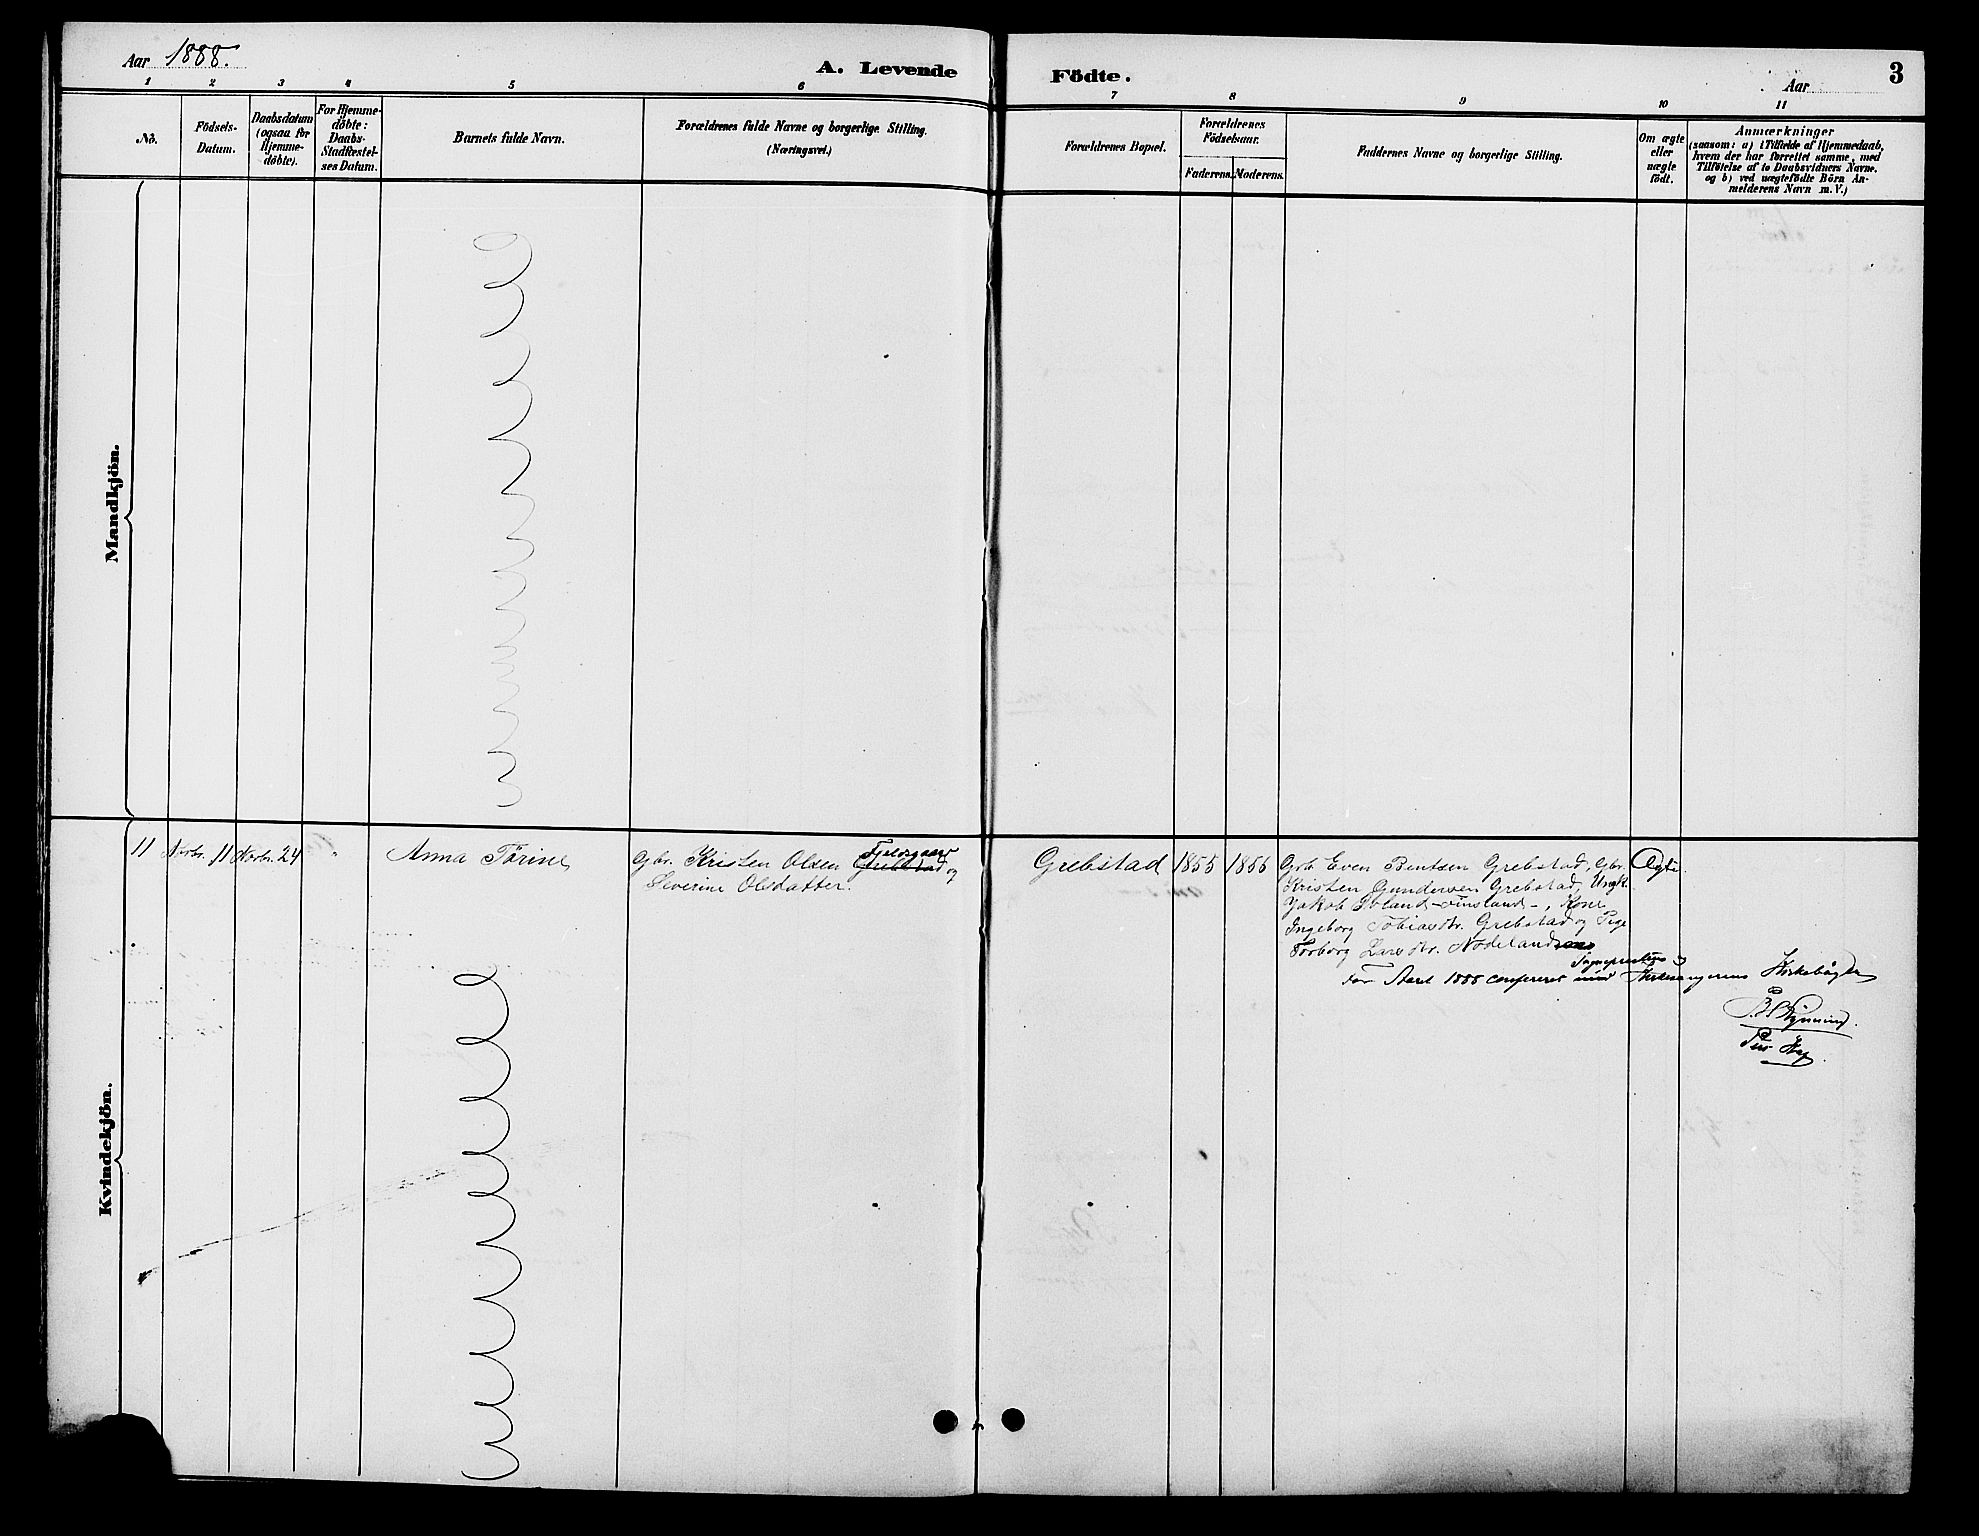 Aar 1888.
A. Levende
Födte.
Aar
3
1 2 3 4 5 6 7 8 9 10 11
No.
Födsels-
Datum.
Daabsdatum
(ogsaa for
Hjemme-
döbte).
For Hjemme-
döbte:
Daabs-
Stadfæstel-
ses Datum.
Barnets fulde Navn.
Forældrenes fulde Navne og borgerlige Stilling.
(Næringsvei.)
Forældrenes Bopæl.
Forældrenes
Födselsaar.
Faderens. Moderens.
Faddernes Navne og borgerlige Stilling.
Om ægte
eller
uægte
födt.
Anmærkninger
(saasom: a) i Tilfælde af Hjemmedaab,
hvem der har forrettet samme, med
Tilföielse af to Daabsvidners Navne,
og b) ved uægtefödte Börn An-
melderens Navn m.V.)
Mandkjön.
Kvindekjön.
11
Novbr. 11
Novbr. 24
"
Anna Tørine
Gbr. Kristen Olsen Grebstad og
Severine Olsdatter.
Grebstad
1855
1856
Grb. Even Bentsen Grebstad, Gbr.
Kristen Gundersen Grebstad, Ungk.
Jakob -Finsland-, Kone
Ingeborg Tobiasdtr. Grebstad og Pige
Torborg Larsdtr. Nodeland
Ægte.
Sogneprestens og
For Aaret 1888 confereret med Kirkesangerens Kirkebøger